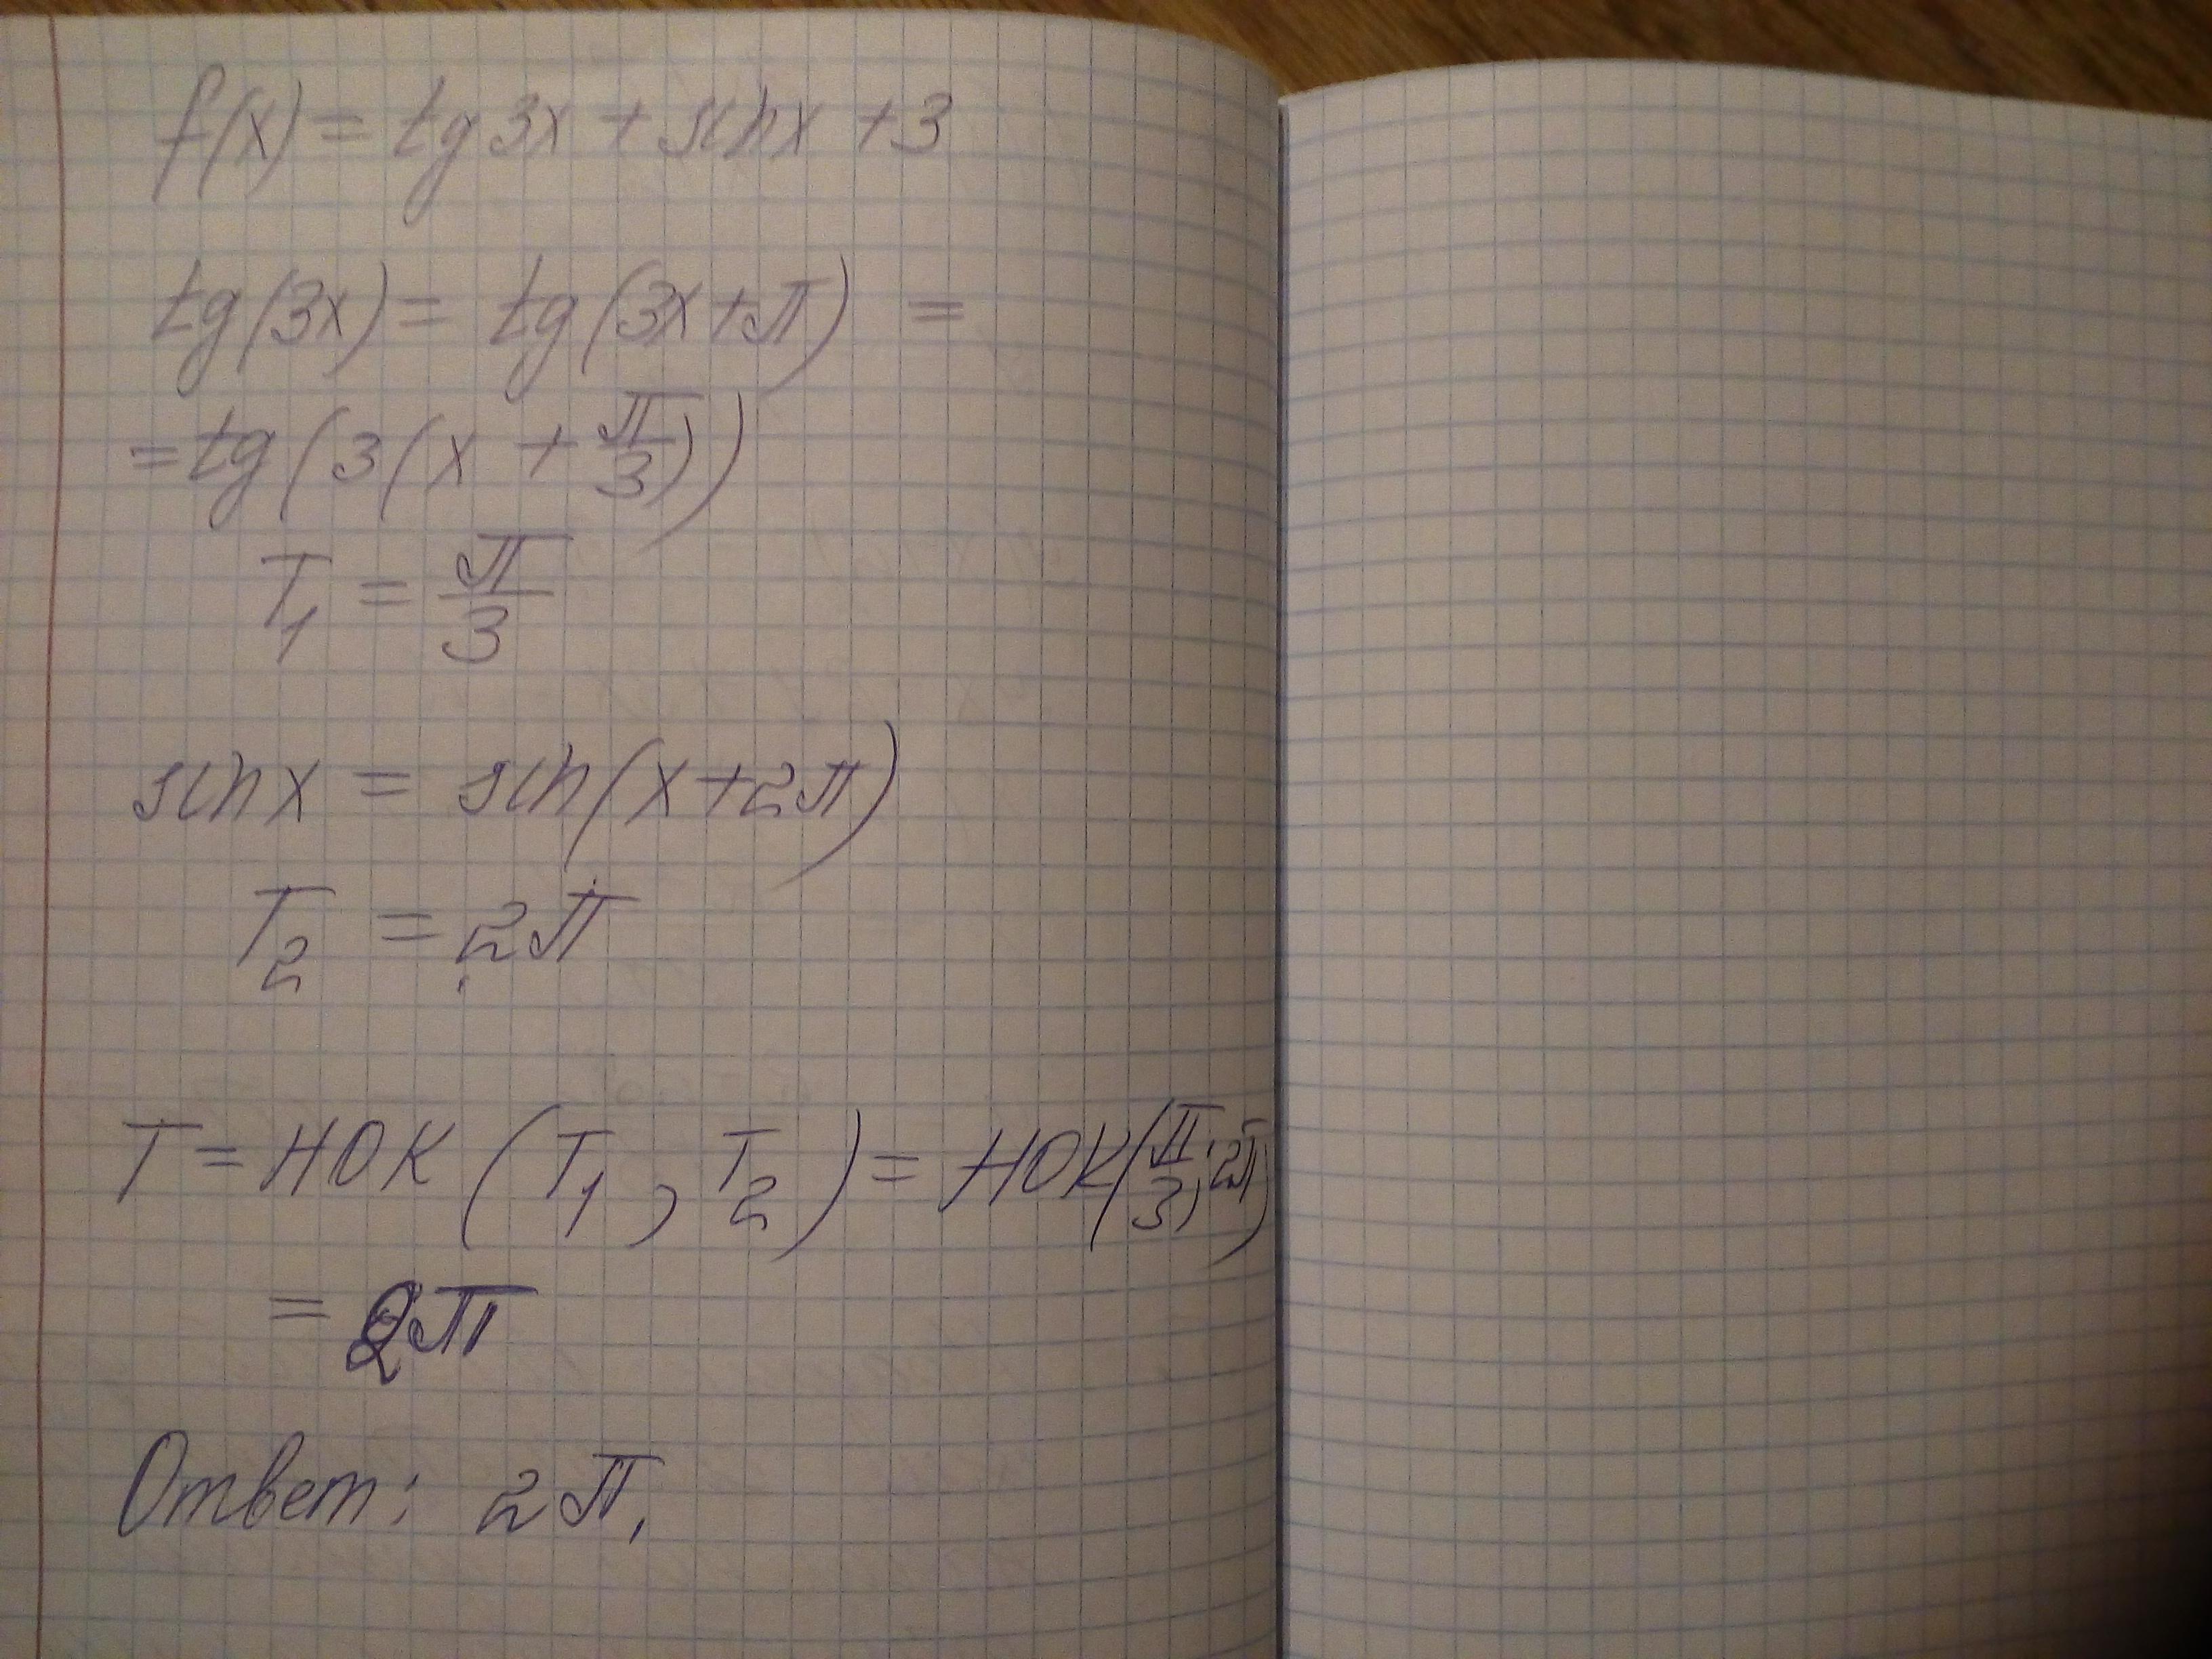 f(x) = tg3x + sinx + 3
tg(3x) = tg(3x+π) =
= tg(3(x + π/3))
T₁ = π/3
sinx = sin(x+2π)
T₂ = 2π
T = НОК (T₁, T₂) = НОК(π/3; 2π)
= 2π
Ответ: 2π.